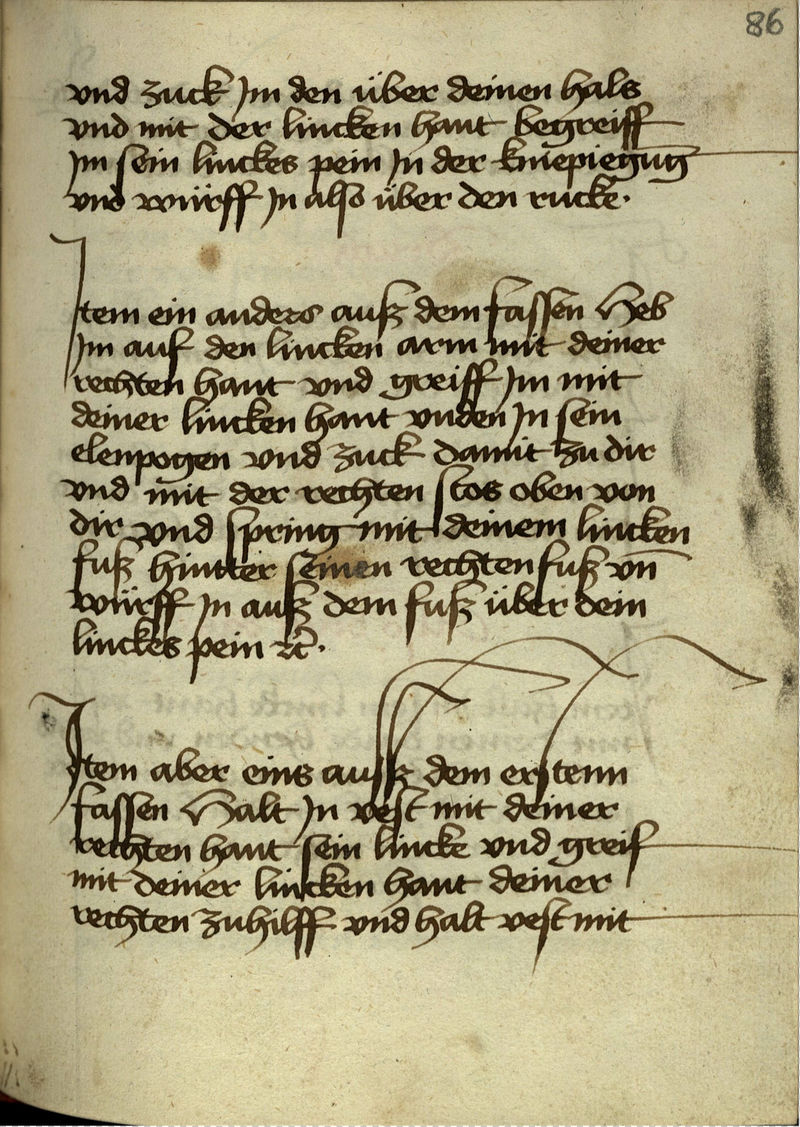 86
vnd zuck Jm den über deinen hals
vnd mit der lincken hant begreiff
Jm sein linckes pein Jn der kniepiegūg
vnd würff Jn also über den rucke.
Jtem ein anders auß dem fassen Heb
Jm auf den lincken arm mit deiner
rechten hant vnd greiff Jm mit
deiner lincken hant vnden Jn sein
elenpogen vnd zuck damit zu dir
vnd mit der rechten stos oben von
dir vnd spring mit deinem lincken
fuß hintter seinen rechten fuß vn̄
würff Jn auß dem fuß über dein
linckes pein ꝛc̄.
Jtem aber eins auß dem erstenn
fassen Halt Jn vest mit deiner
rechten hant sein lincke vnd greif
mit deiner lincken hant deiner
rechten zuhilff vnd halt vest mit